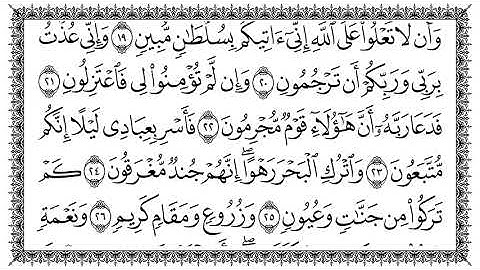 وَأَن لَّا تَعْلُوا۟ عَلَى ٱللَّهِ إِنِّىٓ ءَاتِيكُم بِسُلْطَـٰنٍ مُّبِينٍ ١٩ وَإِنِّى عُذْتُ
بِرَبِّى وَرَبِّكُمْ أَن تَرْجُمُونِ ٢٠ وَإِن لَّمْ تُؤْمِنُوا۟ لِى فَٱعْتَزِلُونِ ٢١
فَدَعَا رَبَّهُۥٓ أَنَّ هَـٰٓؤُلَآءِ قَوْمٌ مُّجْرِمُونَ ٢٢ فَأَسْرِ بِعِبَادِى لَيْلًا إِنَّكُم
مُّتَّبَعُونَ ٢٣ وَٱتْرُكِ ٱلْبَحْرَ رَهْوًا ۖ إِنَّهُمْ جُندٌ مُّغْرَقُونَ ٢٤ كَمْ
تَرَكُوا۟ مِن جَنَّـٰتٍ وَعُيُونٍ ٢٥ وَزُرُوعٍ وَمَقَامٍ كَرِيمٍ ٢٦ وَنَعْمَةٍ